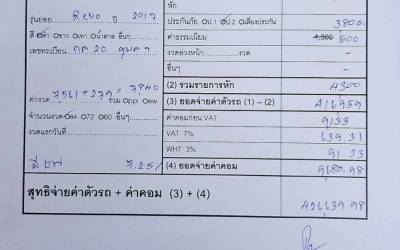 หัก
รุ่นย่อย Revo ปี 2017 ประกันภัย ป.1 ป.2 เสี่ยงประกัน 3800.-
สี ดำ ขาว เทา น้ำตาล อื่นๆ ค่าธรรมเนียม 4,500 500
เลขทะเบียน งวดล่วงหน้า งวด -
อื่นๆ -
(2) รวมรายการหัก 4300
ค่างวด 7561 + 279 = 7840 รวม Oppi Oew (3) ยอดจ่ายค่าตัวรถ (1) - (2) 416959
จำนวนงวด 84 72 60 อื่นๆ ค่าคอมก่อน VAT 9133
งวดแรกวันที่ VAT 7% 639.31
WHT 3% 91.33
7.25% (4) ยอดจ่ายค่าคอม 9680.98
สุทธิจ่ายค่าตัวรถ + ค่าคอม (3) + (4)
426639.98